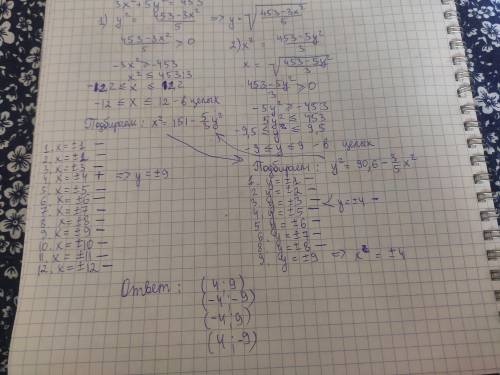 3x²+5y² = 453
1) y² = (453-3x²)/5 => y = √((453-3x²)/5)
(453-3x²)/5 > 0
-3x² > -453
x² ≤ 453:3
-12,2 ≤ x ≤ 12,2
-12 ≤ x ≤ 12 - в целых
Подбираем: x² = 151 - 5/3y²
1. x = ±1 —
2. x = ±2 —
3. x = ±3 —
4. x = ±4 + => y = ±9
5. x = ±5 —
6. x = ±6 —
7. x = ±7 —
8. x = ±8 —
9. x = ±9 —
10. x = ±10 —
11. x = ±11 —
12. x = ±12 —
2) x² = (453-5y²)/3
x = √((453-5y²)/3)
(453-5y²)/3 > 0
-5y² ≥ -453
5y² ≤ 453
-9,5 ≤ y ≤ 9,5
-9 ≤ y ≤ 9 - в целых
Подбираем: y² = 90,6 - 3/5x²
1. y = ±1 —
2. y = ±2 —
3. y = ±3 — < y = ±4 —
4. y = ±5 —
5. y = ±6 —
6. y = ±7 —
8. y = ±8 —
9. y = ±9 => x² = ±4
Ответ: (4; 9)
(-4; -9)
(-4; 9)
(4; -9)